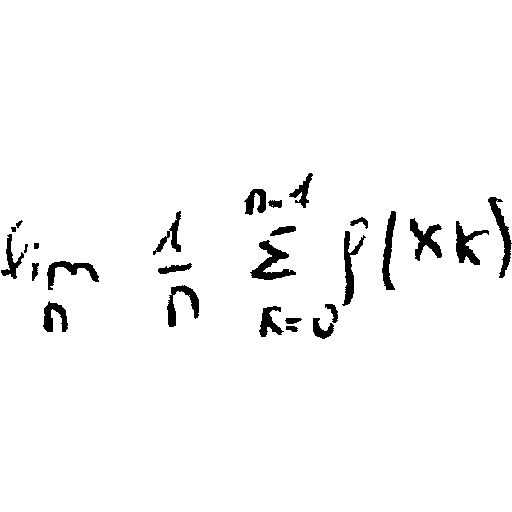 \lim_{n} \frac{1}{n} \sum_{k=0}^{n-1} f(x_k)